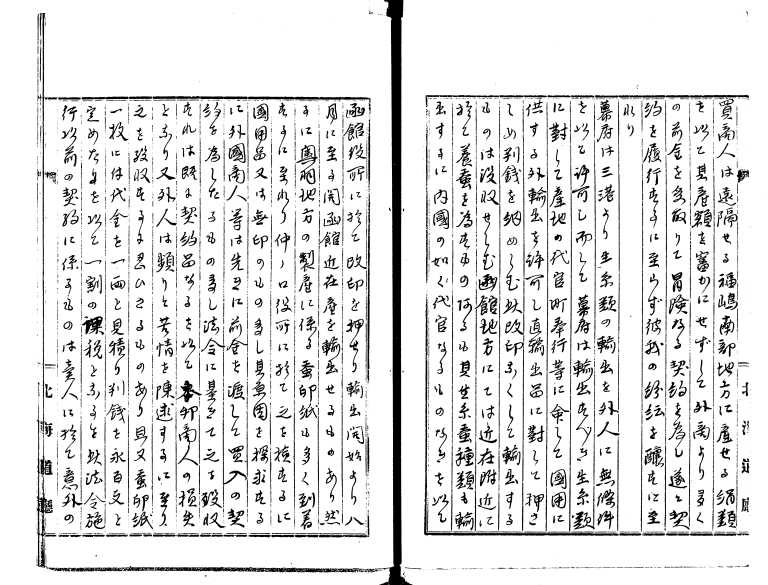 買商人は遠隔せる福嶋南部地方に産せる絹類
を以て其産額を審かにせずして外商より多く
の前金を受取りて冒険なる契約を為し遂に契
約を履行するに至らず彼我の紛紜を醸すに至
れり
幕府は三港より生糸類の輸出を外人に無條件
を以て許可し而して幕府は輸出すべき生糸類
に對して産地の代官町奉行等に命じて國用に
供する外輸出を許可し直輸出品に對して押さ
しめ判錢を納めしむ此改印なくして輸出する
ものは没収せしむ函館地方にては近在附近に
於て養蚕を為すものあるも其生糸蚕種類も輸
出するに内國の如く代官なるものなきを以て
函館役所に於て改印を押せり輸出開始より八
月に至る間函館近在産を輸出せるものあり然
るに奥州地方の製産に係る蚕卵紙も多く到着
するに至れり仲ノ口役所に於て之を検するに
國用品又は無印のもの多し其原因を探求する
に外國商人等は先きに前金を渡して買入の契
約を為したるもの多し法令に基きて之を没収
すれは既に契約品なるを以て 商人の損失
となり又外人は頻りと苦情を陳述するに至り
之を没収するに忍びざるものあり且又蚕卵紙
一枚に付代金を一両と見積り判錢を永百文と
定めたるを以て一割の課税となるを以法令施
行以前の契約に係るものは商人に於て意外の
北海道廳
北海道廳